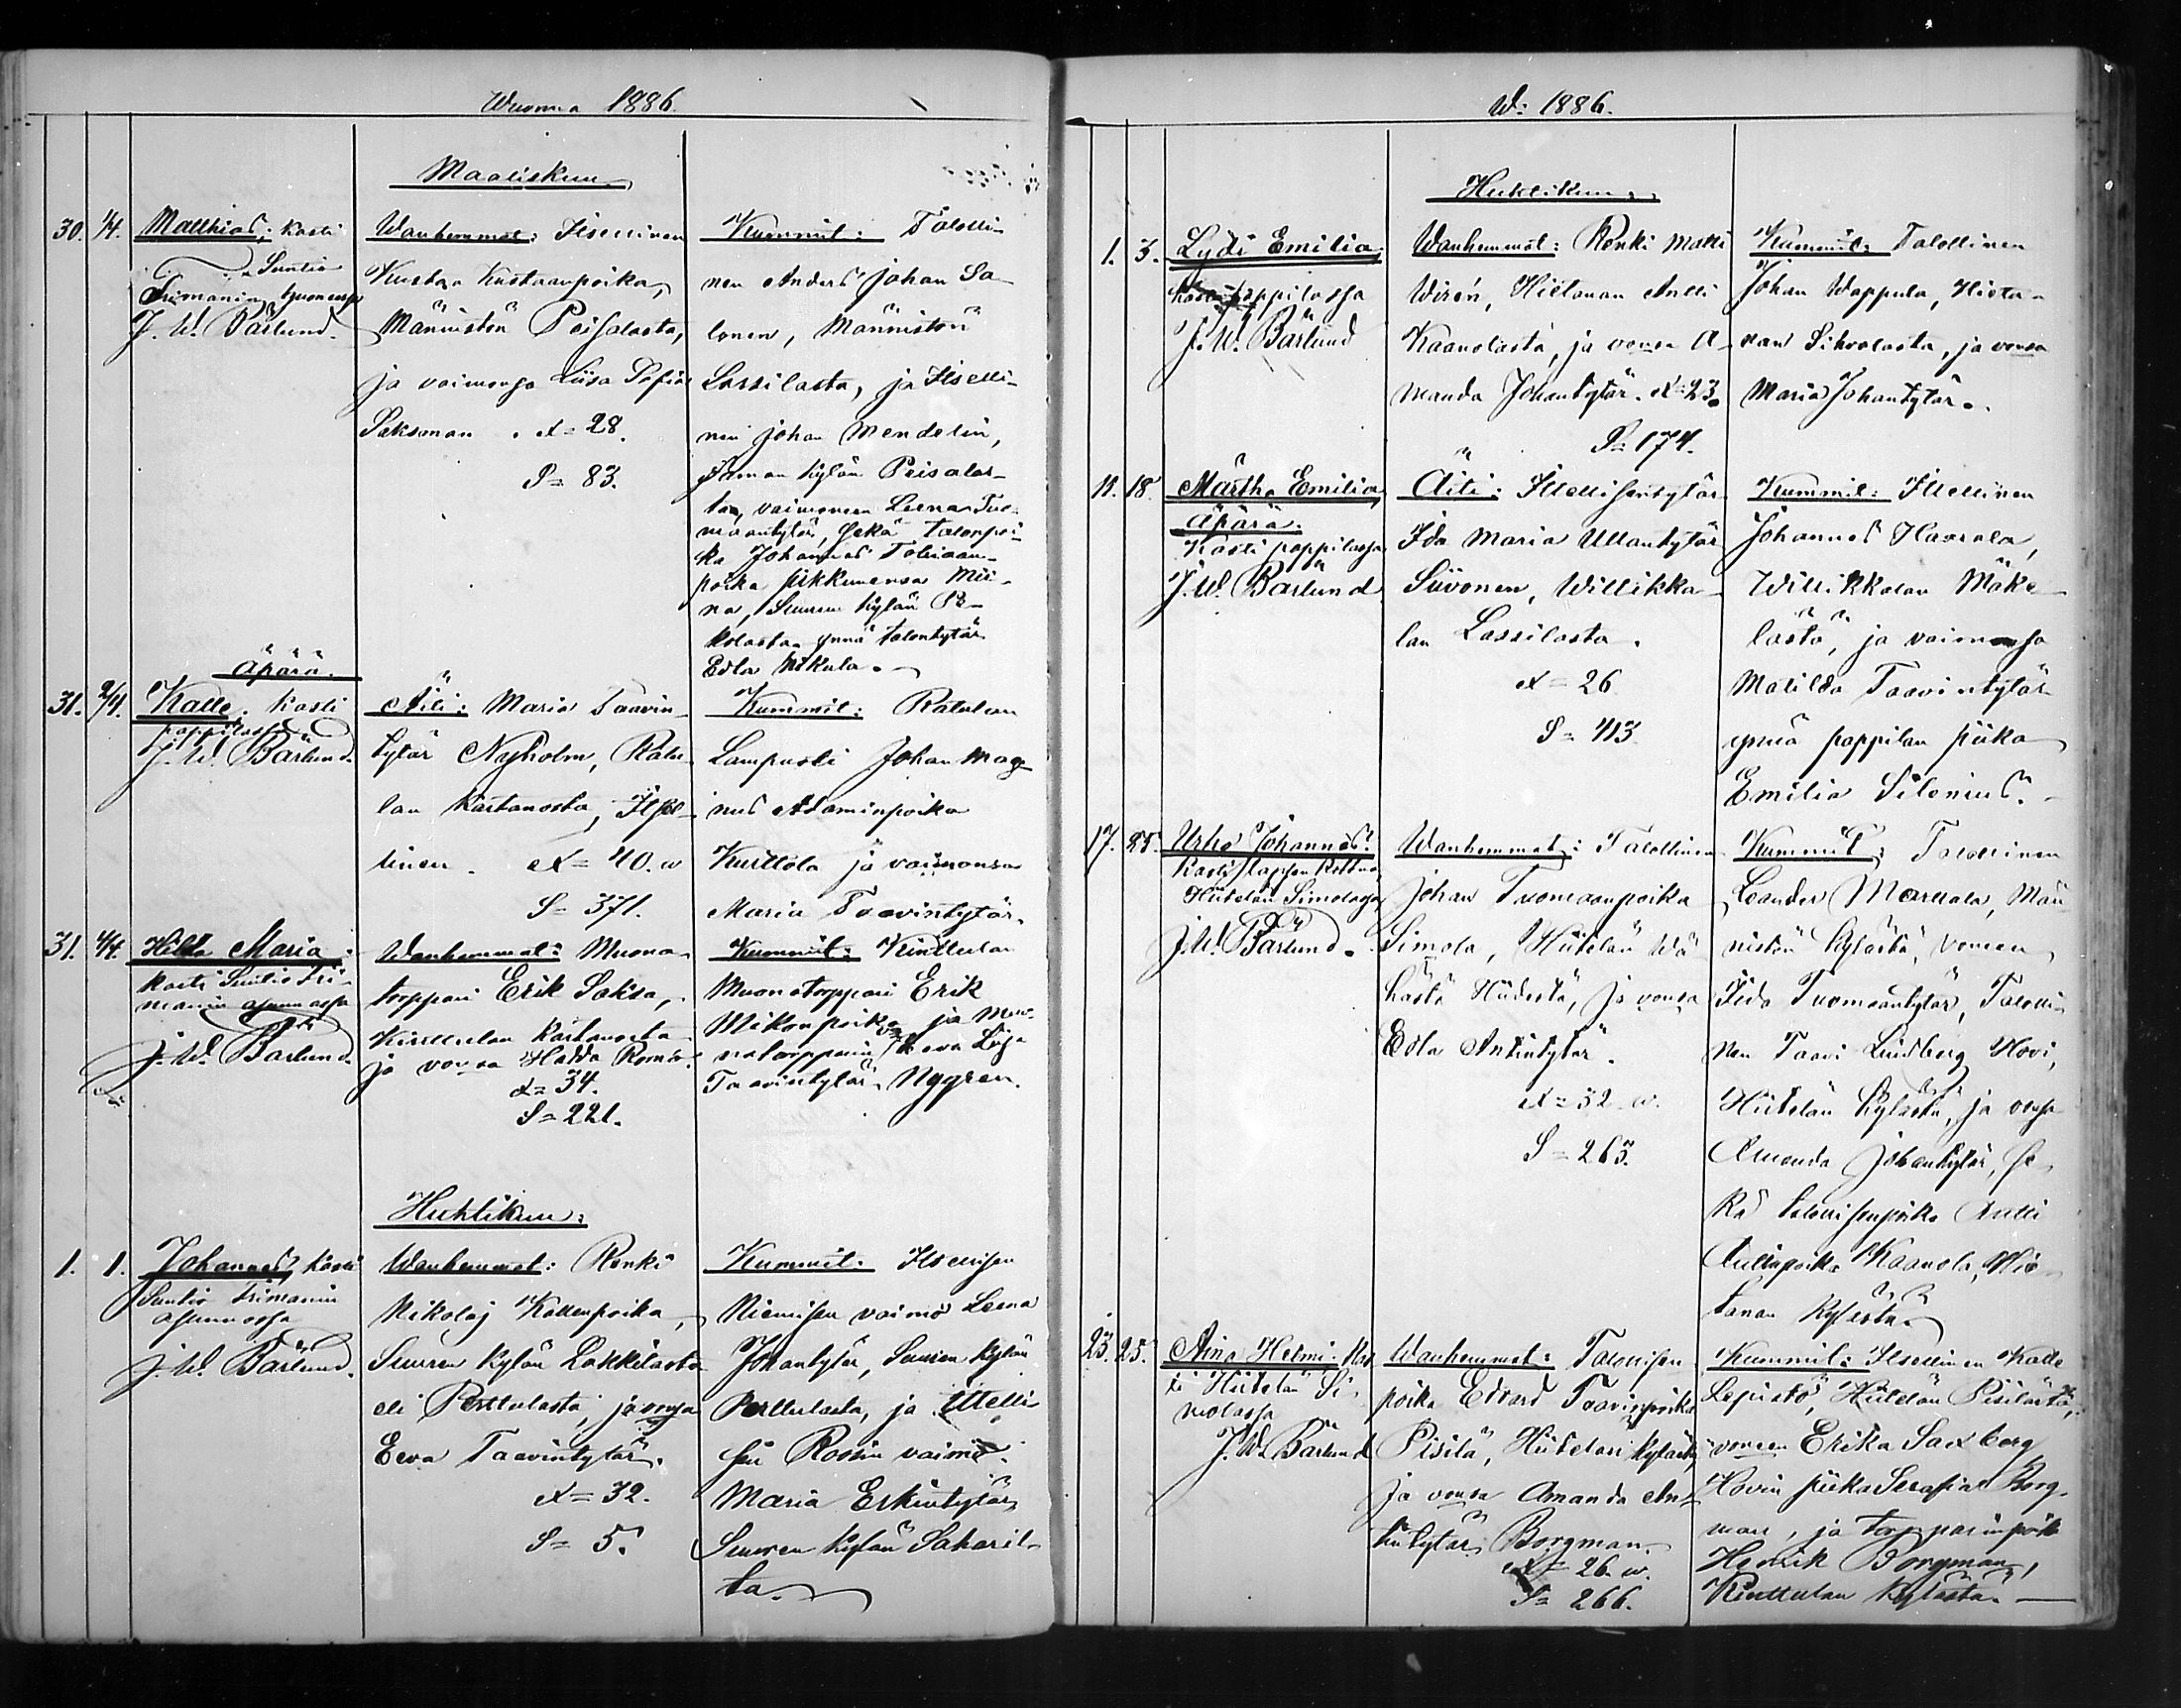 Wuonna 1886.
Maaliskuu.
30. 1/4. Matthias; kasti
Suntio
J. W. Bärlund.
Wanhemmat: Itsellinen
Kustaa Kustaanpoika,
Männistön Peisalasta,
ja vaimonsa Liisa Sofia
Saksman. Ä= 28.
S= 83.
Kummit: Talolli-
nen Anders Johan Sa-
lonen, Männistön
Lassilasta, ja Itselli-
nen Johan Mendelin,
saman kylän Peisalas-
ta, vaimoneen Leena Tuo-
maantytär, sekä talonpoi-
ka Johannes
poika sikkunensa Mii-
na, Suuren kylän Pe-
kolasta ynnä talontytär
Edla Mikula.
äpärä.
31. 2/4. Kalle. Kasti
pappilassa
J. W. Bärlund.
Äiti: Maria Taavin-
tytär Nyholm, Ratu-
lan kartanosta, Itsel-
linen. Ä= 40. w
S= 371.
Kummit: Ratulan
Lampuoti Johan Mag-
nus Adaminpoika
Kurttola ja vaimonsa
Maria Taavintytär.
31. 4/4. Hilda Maria:
kasti Suntio Fri-
manin asunnossa
J. W. Bärlund.
Wanhemmat: Muona-
torppari Erik Saksa,
kartanosta
ja vonsa Hedda
Ä= 34.
S= 221.
Kummit:
Muonatorppari Erik
Mikonpoika ja Muo-
natorpparin Eeva Liisa
Taavintytär Nygren.
Huhtikuu:
1. 1. Johannes, kasti
Suntio Frimanin
asunnossa
J. W. Bärlund.
Wanhemmat: Renki
Nikolaj Kallenpoika,
Suuren kylän Lokkilasta
eli Perttulasta, ja vonsa
Eeva Taavintytär.
Ä= 32.
S= 5.
Kummit: Itsellisen
Niemisen vaimo Leena
Johantytär, Suuren kylän
Perttulasta, ja Itselli-
sen Rossin vaimo
Maria Erkintytär
Suuren kylän Saharil-
ta.
W: 1886.
Huhtikuu.
1. 3. Lydi Emilia,
kasti pappilassa
J. W. Bärlund
Wanhemmat: Renki Matti
Wirén, Hietanan Antti
Kaanolasta, ja vonsa A-
manda Johantytär. Ä=23.
S= 174.
Kummit: Talollinen
Johan Wappula, Hieta-
nan Sihvolasta, ja vonsa
Maria Johantytär.
11. 18. Märtha Emilia
äpärä.
Kasti pappilassa
J. W. Bärlund
Äiti: Itsellisentytär
Ida Maria Ullantytär
Siivonen, Willikka-
lan Lassilasta.
Ä= 26
S= 413
Kummit: Itsellinen
Johannes Haarala,
Willikkalan Mäke-
lästä, ja vaimonsa
Matilda Taavintytär
ynnä pappilan piika
Emilia Silenius.
17. 25. Urho Johannes.
Kasti
Hiitelän Simolassa
J. W. Bärlund.
Wanhemmat: Talollinen
Johan Tuomaanpoika
Simola, Hiitelän Wä-
hästä Hiidestä, ja vonsa
Edla Antintytär.
Ä= 32 w.
S= 263.
Kummit: Talollinen
Leander Marttala, Män-
nistön kylästä, voneen
Iida Tuomaantytär, Talolli-
nen Taavi Lindberg Hovi,
Hiitelän kylästä, ja vonsa
Amanda Johantytär, se-
kä talollisenpoika Antti
Antinpoika Kaanola, Hie-
tanan kylästä.
23. 25. Aina Helmi. Kas-
ti Hiitelän Si-
molassa
J. W. Bärlund
Wanhemmat: Talollisen
poika Edvard Taavinpoika
Pisilä, Hiitelän kylästä,
ja vonsa Amanda An-
tintytär Borgman.
Ä= 26. w.
S= 266.
Kummit: Itsellinen Kalle
Lepistö, Hiitelän Pisilästä,
voneen Erika Saxberg
Hovin piika Serafia Borg-
man, ja torpparinpoika
Henrik Borgman,
Kinttulan kylästä.